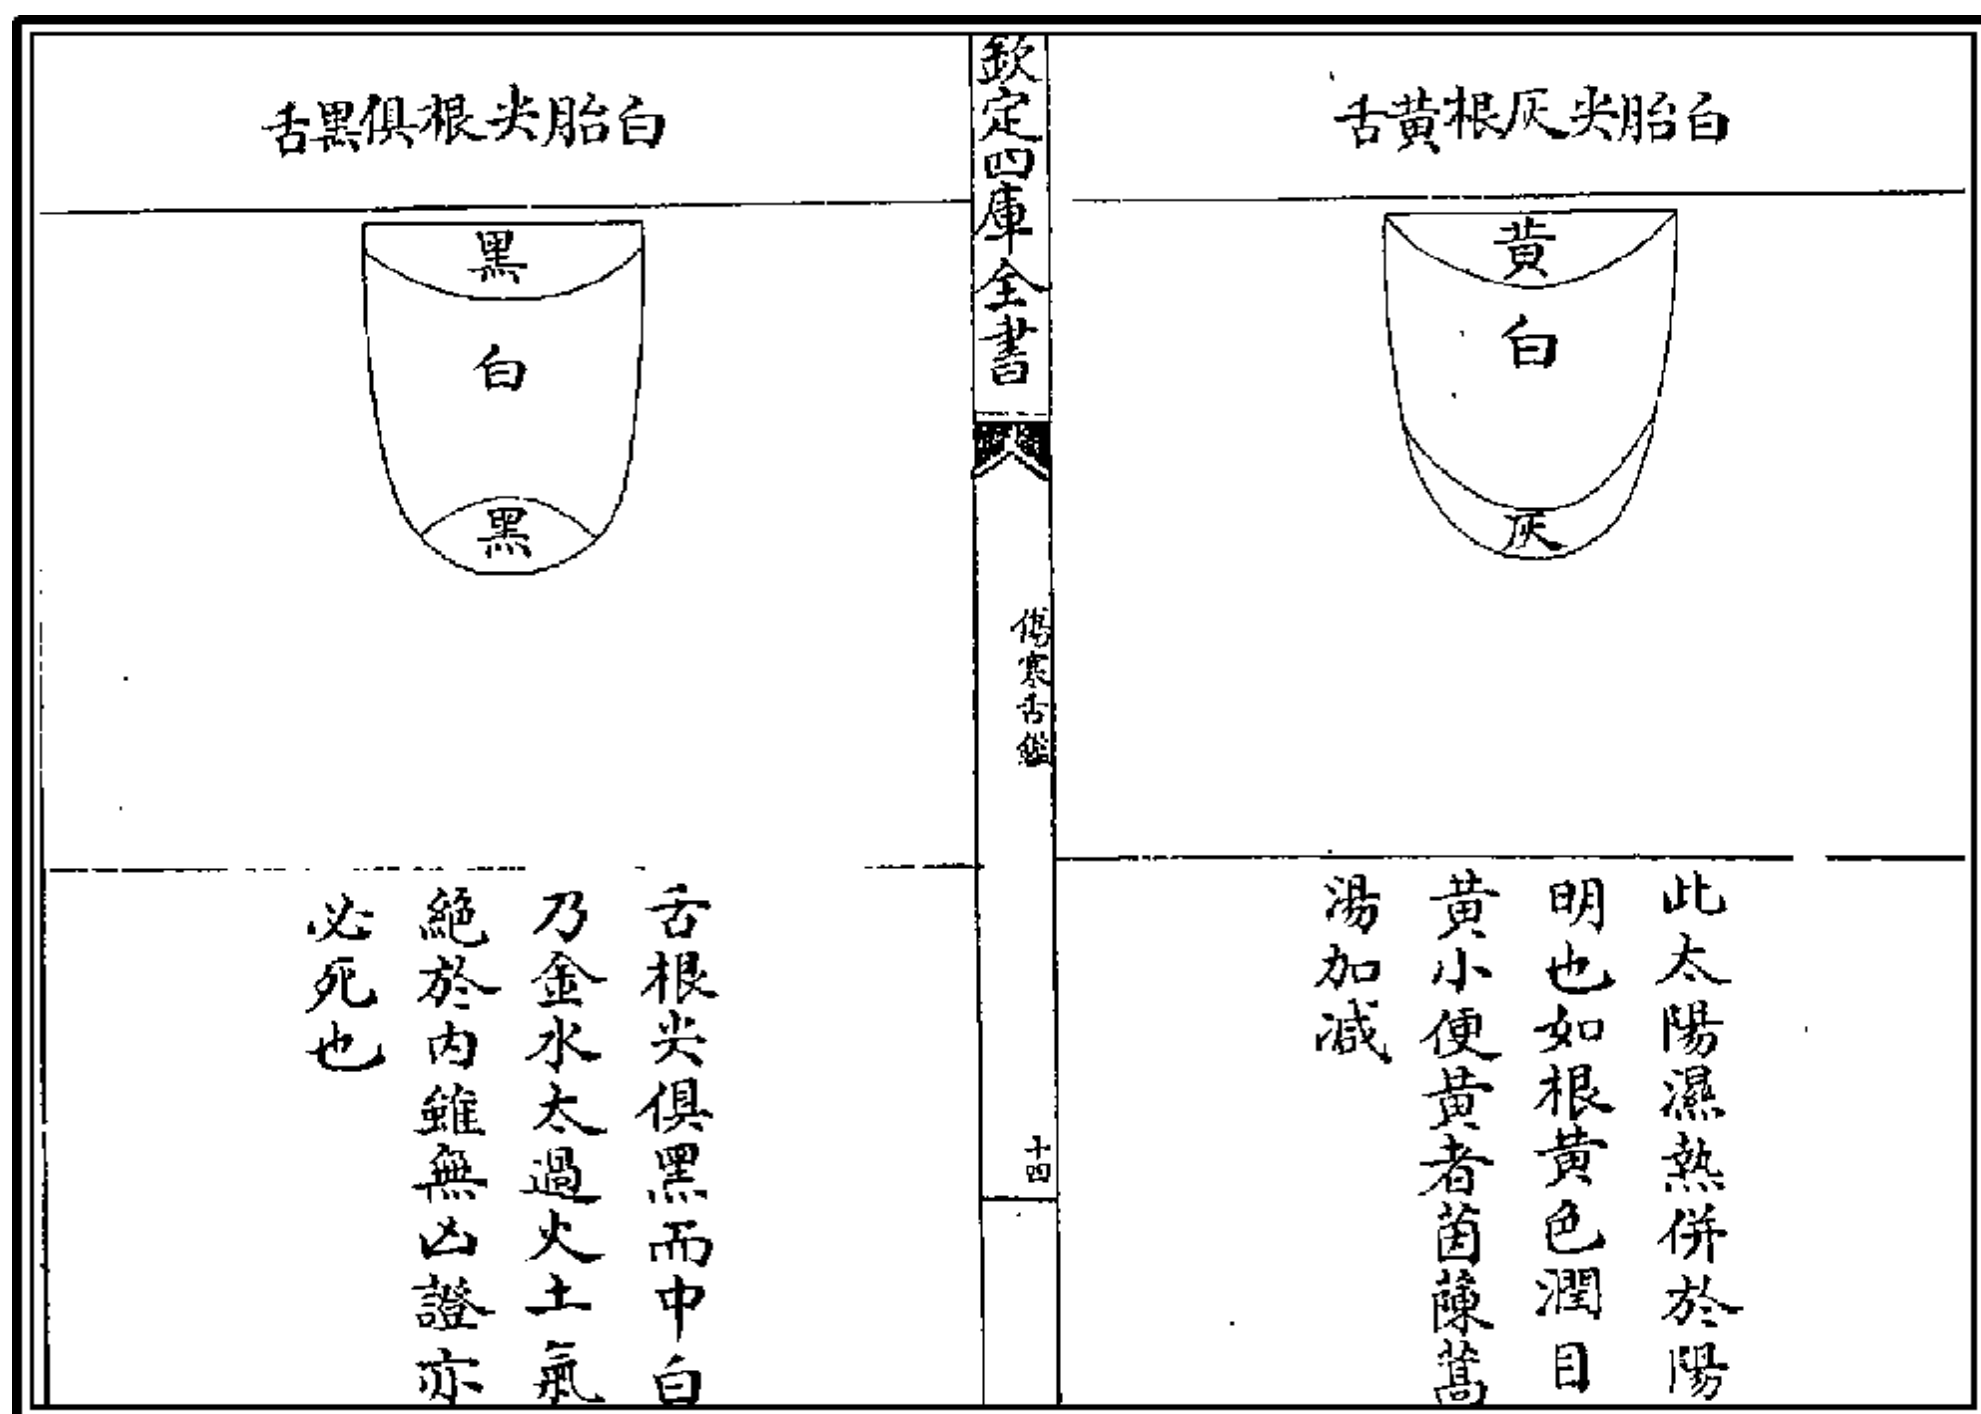 白胎尖灰根黄舌
黄
白
灰
此太陽濕熱併於陽
明也如根黄色潤目
黄小便黄者茵蔯蒿
湯加减
欽定四庫全書
傷寒舌鑑
十四
白胎尖根俱黑舌
黑
白
黑
舌根尖俱黑而中白
乃金水太過火土氣
絕於内雖無凶證亦
必死也